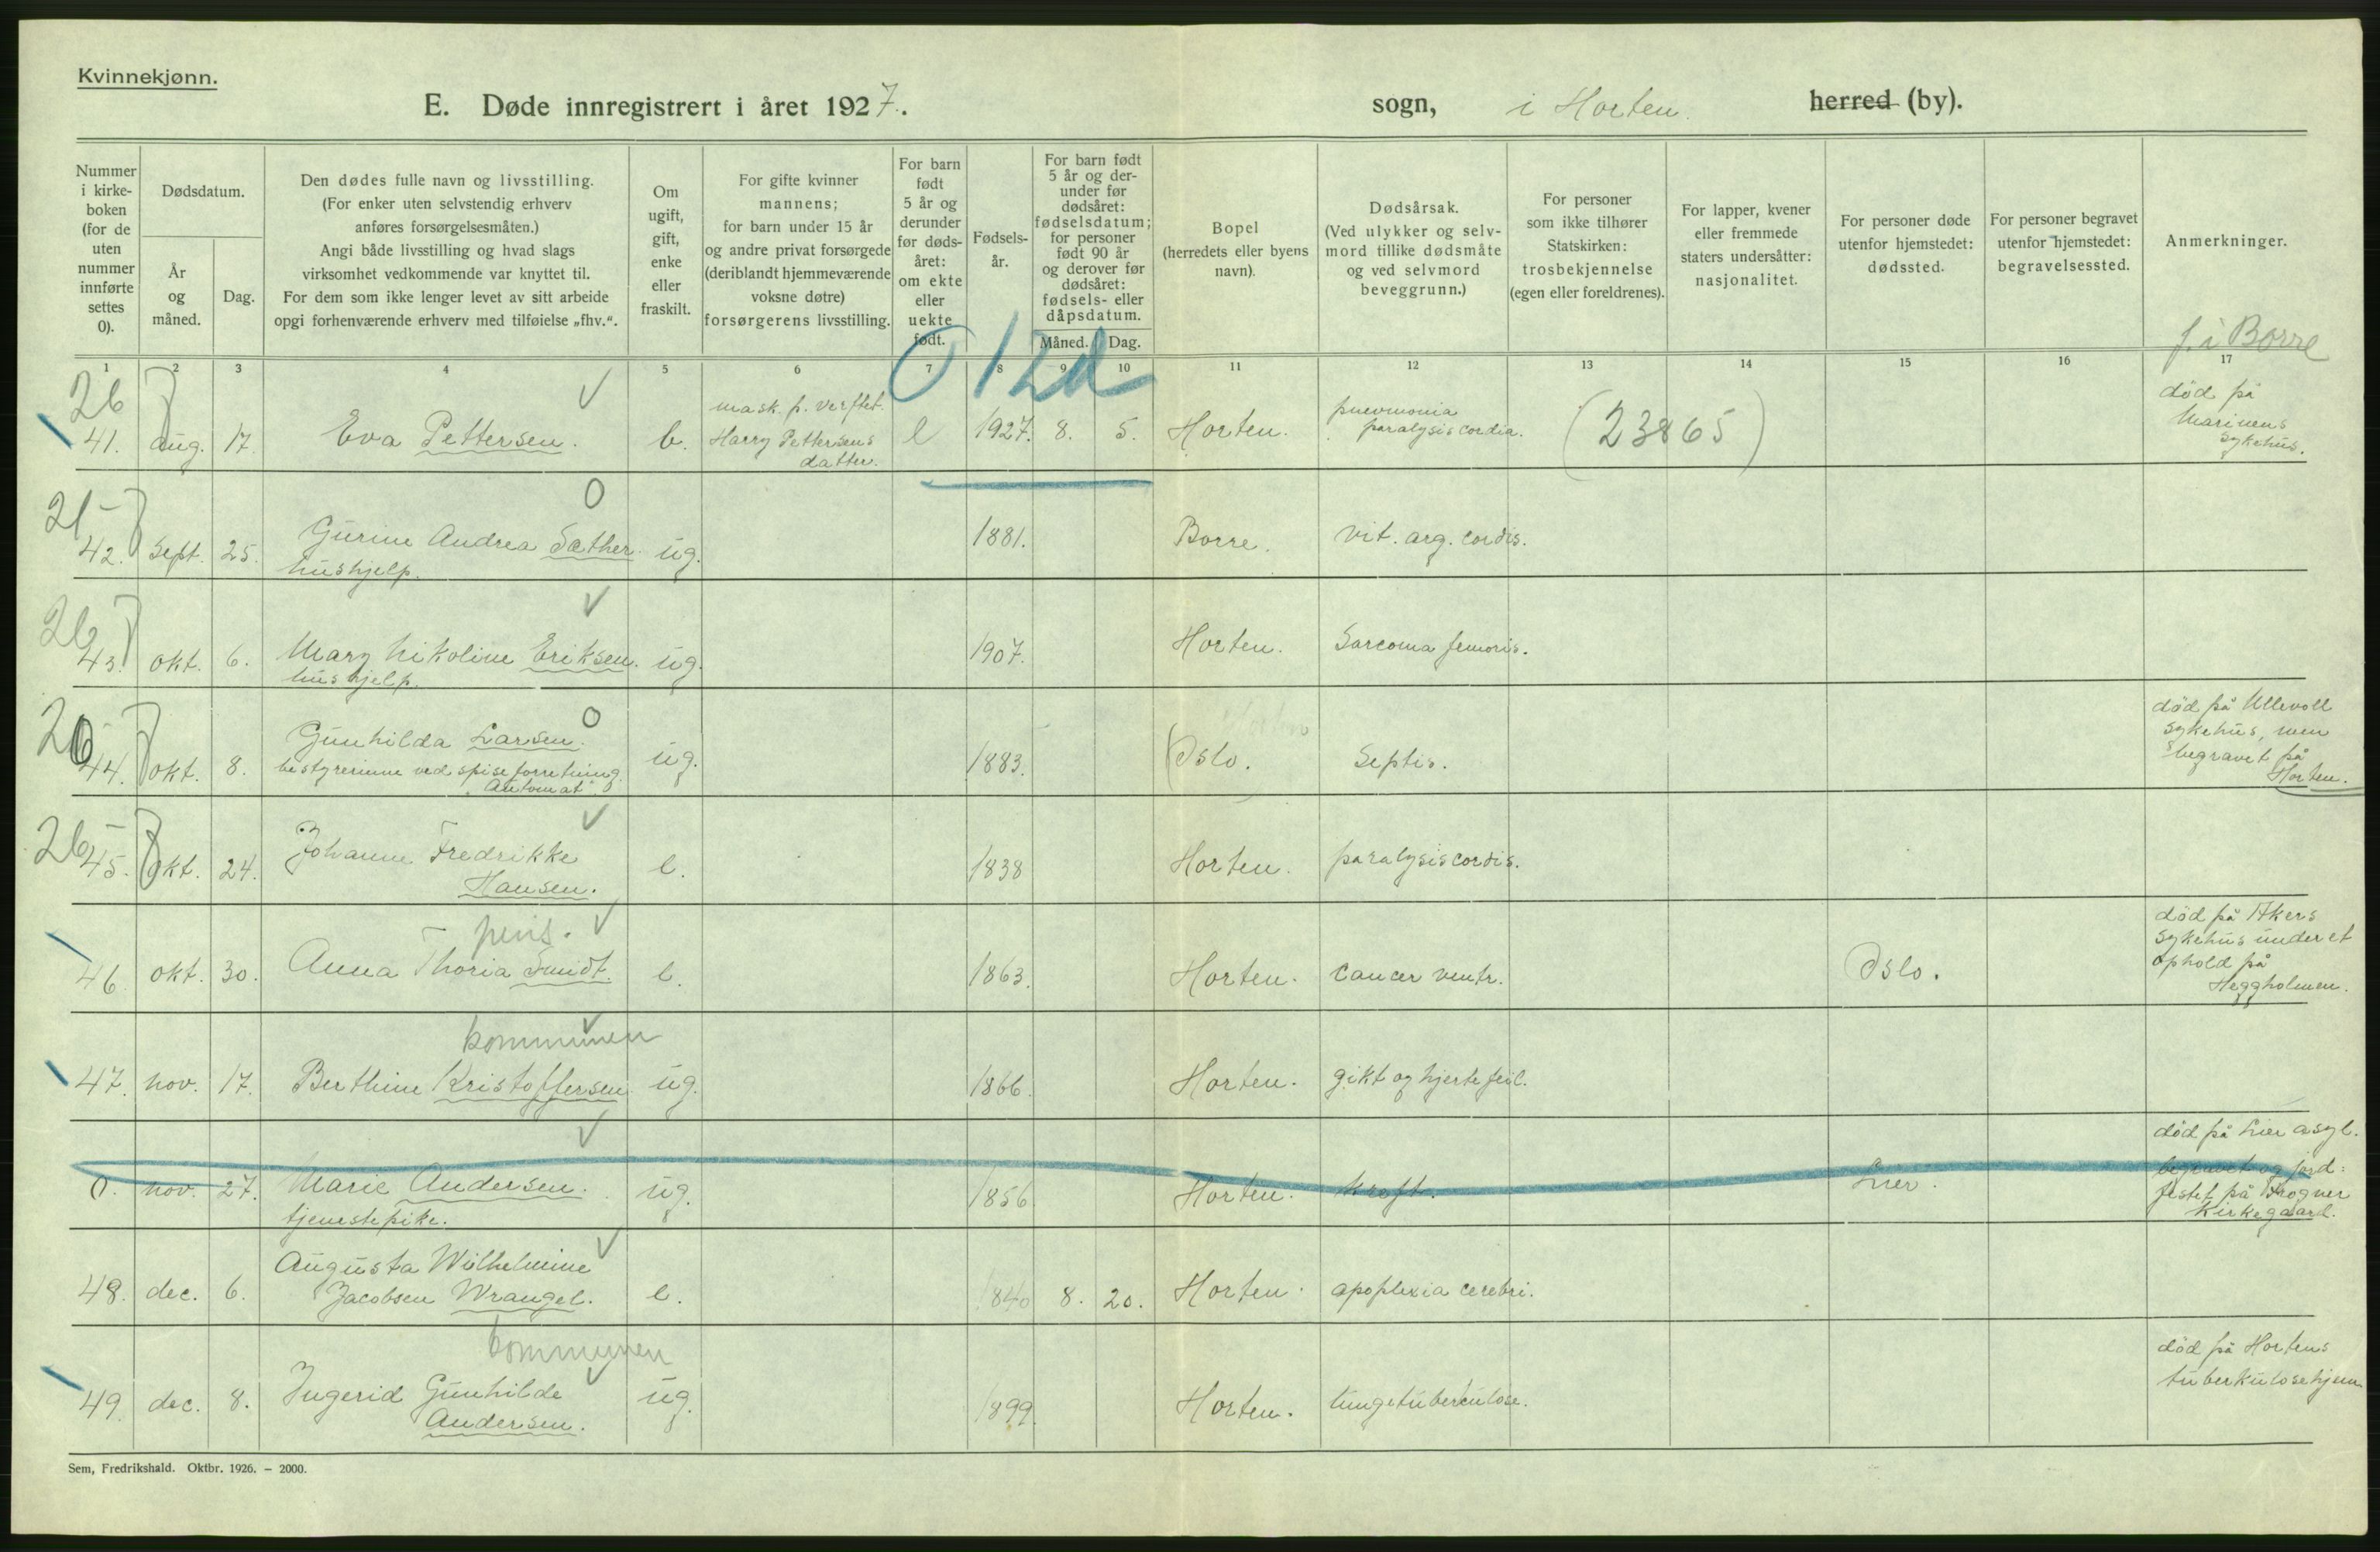 Kvinnekjønn.
E. Døde innregistrert i året 1927.
sogn, i Horten. herred (by).
Nummer i kirke-boken (for de uten nummer innførte settes 0).
Dødsdatum.
År og måned.
Dag.
Den dødes fulle navn og livsstilling.
(For enker uten selvstendig erhverv
anføres forsørgelsesmåten.)
Angi både livsstilling og hvad slags
virksomhet vedkommende var knyttet til.
For dem som ikke lenger levet av sitt arbeide
opgi forhenværende erhverv med tilføielse „fhv.“.
Om ugift, gift, enke eller fraskilt.
For gifte kvinner
mannens;
for barn under 15 år
og andre privat forsørgede
(deriblandt hjemmeværende
voksne døtre)
forsørgerens livsstilling.
For barn født 5 år og derunder før døds-året: om ekte eller uekte født.
Fødsels-år.
For barn født
5 år og der-
under før
dødsåret:
fødselsdatum;
for personer
født 90 år
og derover før
dødsåret:
fødsels- eller
dåpsdatum.
Måned. Dag.
Bopel
(herredets eller byens
navn).
Dødsårsak.
(Ved ulykker og selv-
mord tillike dødsmåte
og ved selvmord
beveggrunn.)
For personer
som ikke tilhører
Statskirken:
trosbekjennelse
(egen eller foreldrenes).
For lapper, kvener
eller fremmede
staters undersåtter:
nasjonalitet.
For personer døde
utenfor hjemstedet:
dødssted.
For personer begravet
utenfor hjemstedet:
begravelsessted.
Anmerkninger.
f. i Borre
1 2 3 4 5 6 7 8 9 10 11 12 13 14 15 16 17
0 12d
26
41. aug. 17. Eva Pettersen. b. mask. p. verftet.
Harry Pettersens
datter.
e 1927. 8. 5. Horten. pneumonia
paralysis cordia.
(23865)
død på
Marinens
sykehus.
21
42. Sept. 25. Gurine Andrea Sæther. ug. 1881. Borre. vit. arg. cordis.
hushjelp.
26
43. okt. 6. Mary Nikoline Eriksen. ug. 1907. Horten. Sarcoma femoris.
hushjelp.
26
44. okt. 8. Gunhilda Larsen. ug. 1883. Oslo. Septis.
bestyrerinne ved spiseforretning
"Automat"
død på Ullevoll
sykehus, men
begravet på
Horten.
26
45. okt. 24. Johanne Fredrikke
Hansen. e. 1838 Horten. paralysis cordis.
pens.
46. okt. 30. Anna Thoria Smidt. e. 1863. Horten. cancer ventr. Oslo.
død på Akers
sykehus under et
ophold på
Heggholmen.
kommunen
47. nov. 17. Berthine Kristoffersen ug. 1866. Horten. gikt og hjertefeil.
0. nov. 27. Marie Andersen. ug. 1856 Horten. kreft. Lier.
tjenestepike.
død på Lier asyl.
begravet og jord=
festet på Frogner
Kirkegaard.
48. dec. 6. Augusta Wilhelmine
Jacobsen Wrangel. e. 1840 8. 20. Horten. apoplexia cerebri.
kommunen
49. dec. 8. Ingerid Gunhilde
Andersen. ug. 1899. Horten. lungetuberculose.
død på Hortens
tuberkulosehjem
Sem, Fredrikshald. Oktbr. 1926. – 2000.